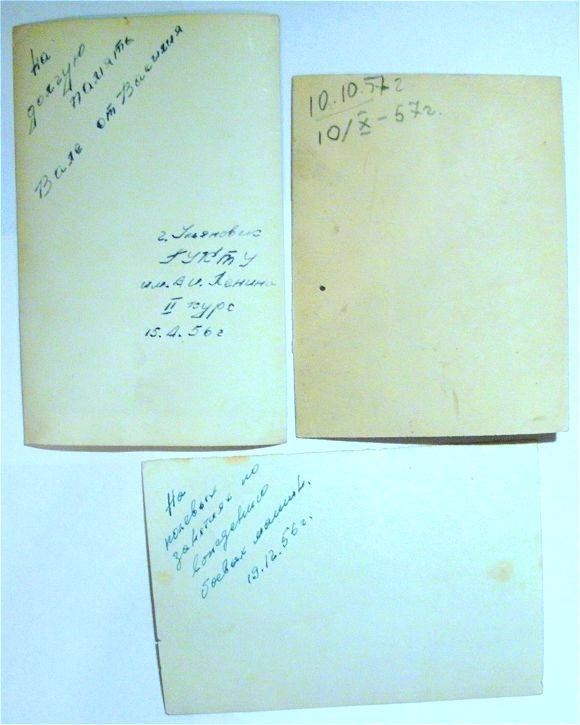 На
долгую
память
Вале от Василия
г. Ульяновск
им. В.И. Ленина
II курс
15.4.56 г
10.10.57 г
10/X-57 г.
На
полевых
занятиях по
вождению
боевых машин.
19.12.56 г.